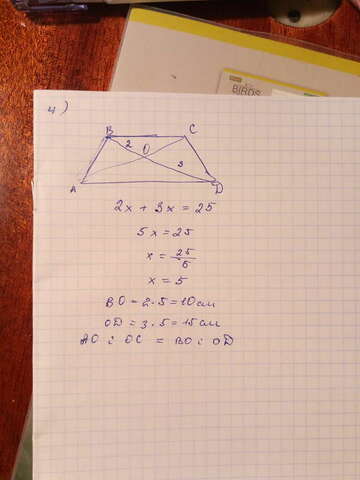 BIRDS
4)
B C
2 O 3
A D
2x + 3x = 25
5x = 25
x = 25/5
x = 5
BO = 2 · 5 = 10 см
OD = 3 · 5 = 15 см
AO : OC = BO : OD